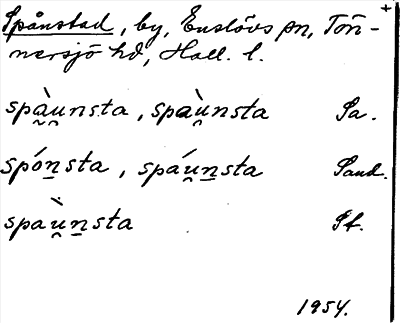 Spånstad, by, Enslövs sn, Tön-
nersjö hd, Hall. l.
spa̰ụ̀nsta, spaụ̀nsta Sa.
spón̠sta, spáu̯n̠sta Sand.
spaụ̀n̠sta St.
1954.